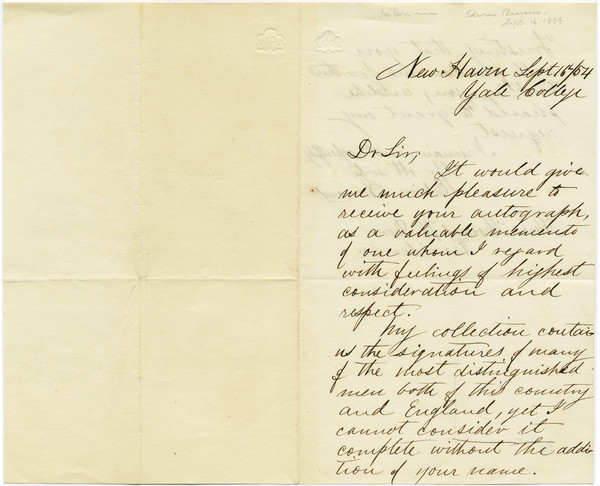 Edwin Barrows
Sept 16, 1854
New Haven Sept 16/54
Yale College
Dr Sir,
It would give
me much pleasure to
receive your autograph,
as a valuable memento
of one whom I regard
with feelings of highest
consideration and
respect.
My collection contain
us the signatures of many
of the most distinguished
men both of this country
and England, yet I
cannot consider it
complete without the addi-
tion of your name.